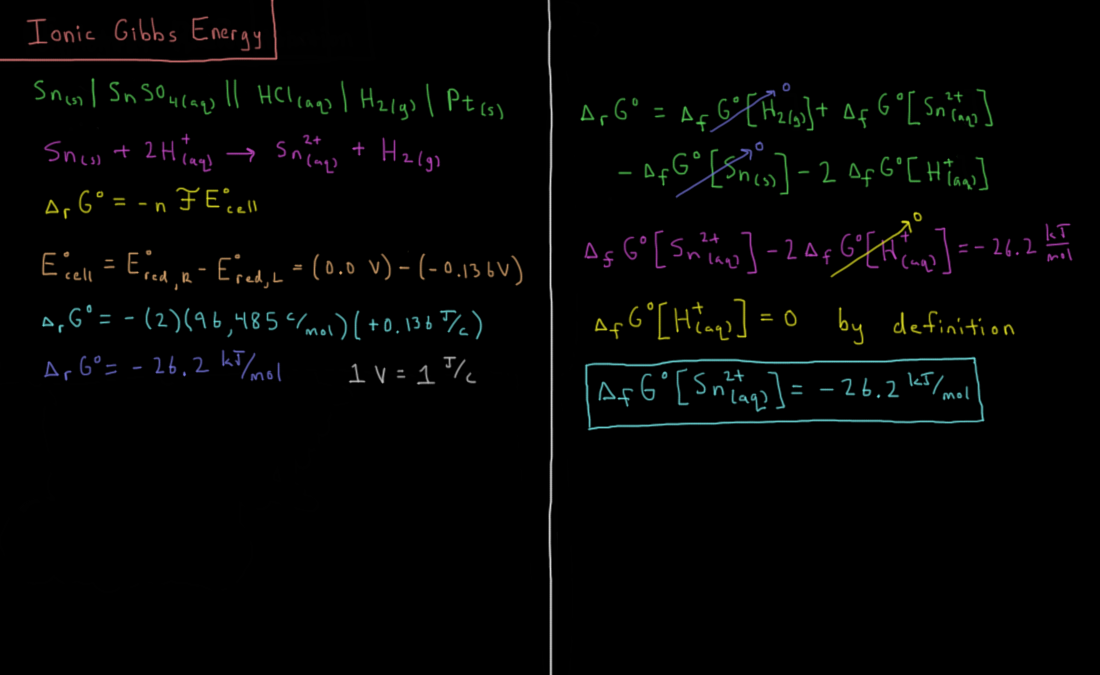 Ionic Gibbs Energy
Sn(s) | SnSO₄(aq) || HCl(aq) | H₂(g) | Pt(s)
Sn(s) + 2H⁺(aq) → Sn²⁺(aq) + H₂(g)
ΔᵣG° = -n ℱ E°cell
E°cell = E°red,R - E°red,L = (0.0 V) - (-0.136V)
ΔᵣG° = - (2)(96,485 C/mol)(+0.136 J/C)
ΔᵣG° = - 26.2 kJ/mol
1 V = 1 J/C
ΔᵣG° = ΔfG°[H₂(g)] 0 + ΔfG°[Sn²⁺(aq)]
- ΔfG°[Sn(s)] 0 - 2 ΔfG°[H⁺(aq)]
ΔfG°[Sn²⁺(aq)] - 2 ΔfG°[H⁺(aq)] 0 = -26.2 kJ/mol
ΔfG°[H⁺(aq)] = 0 by definition
ΔfG°[Sn²⁺(aq)] = -26.2 kJ/mol